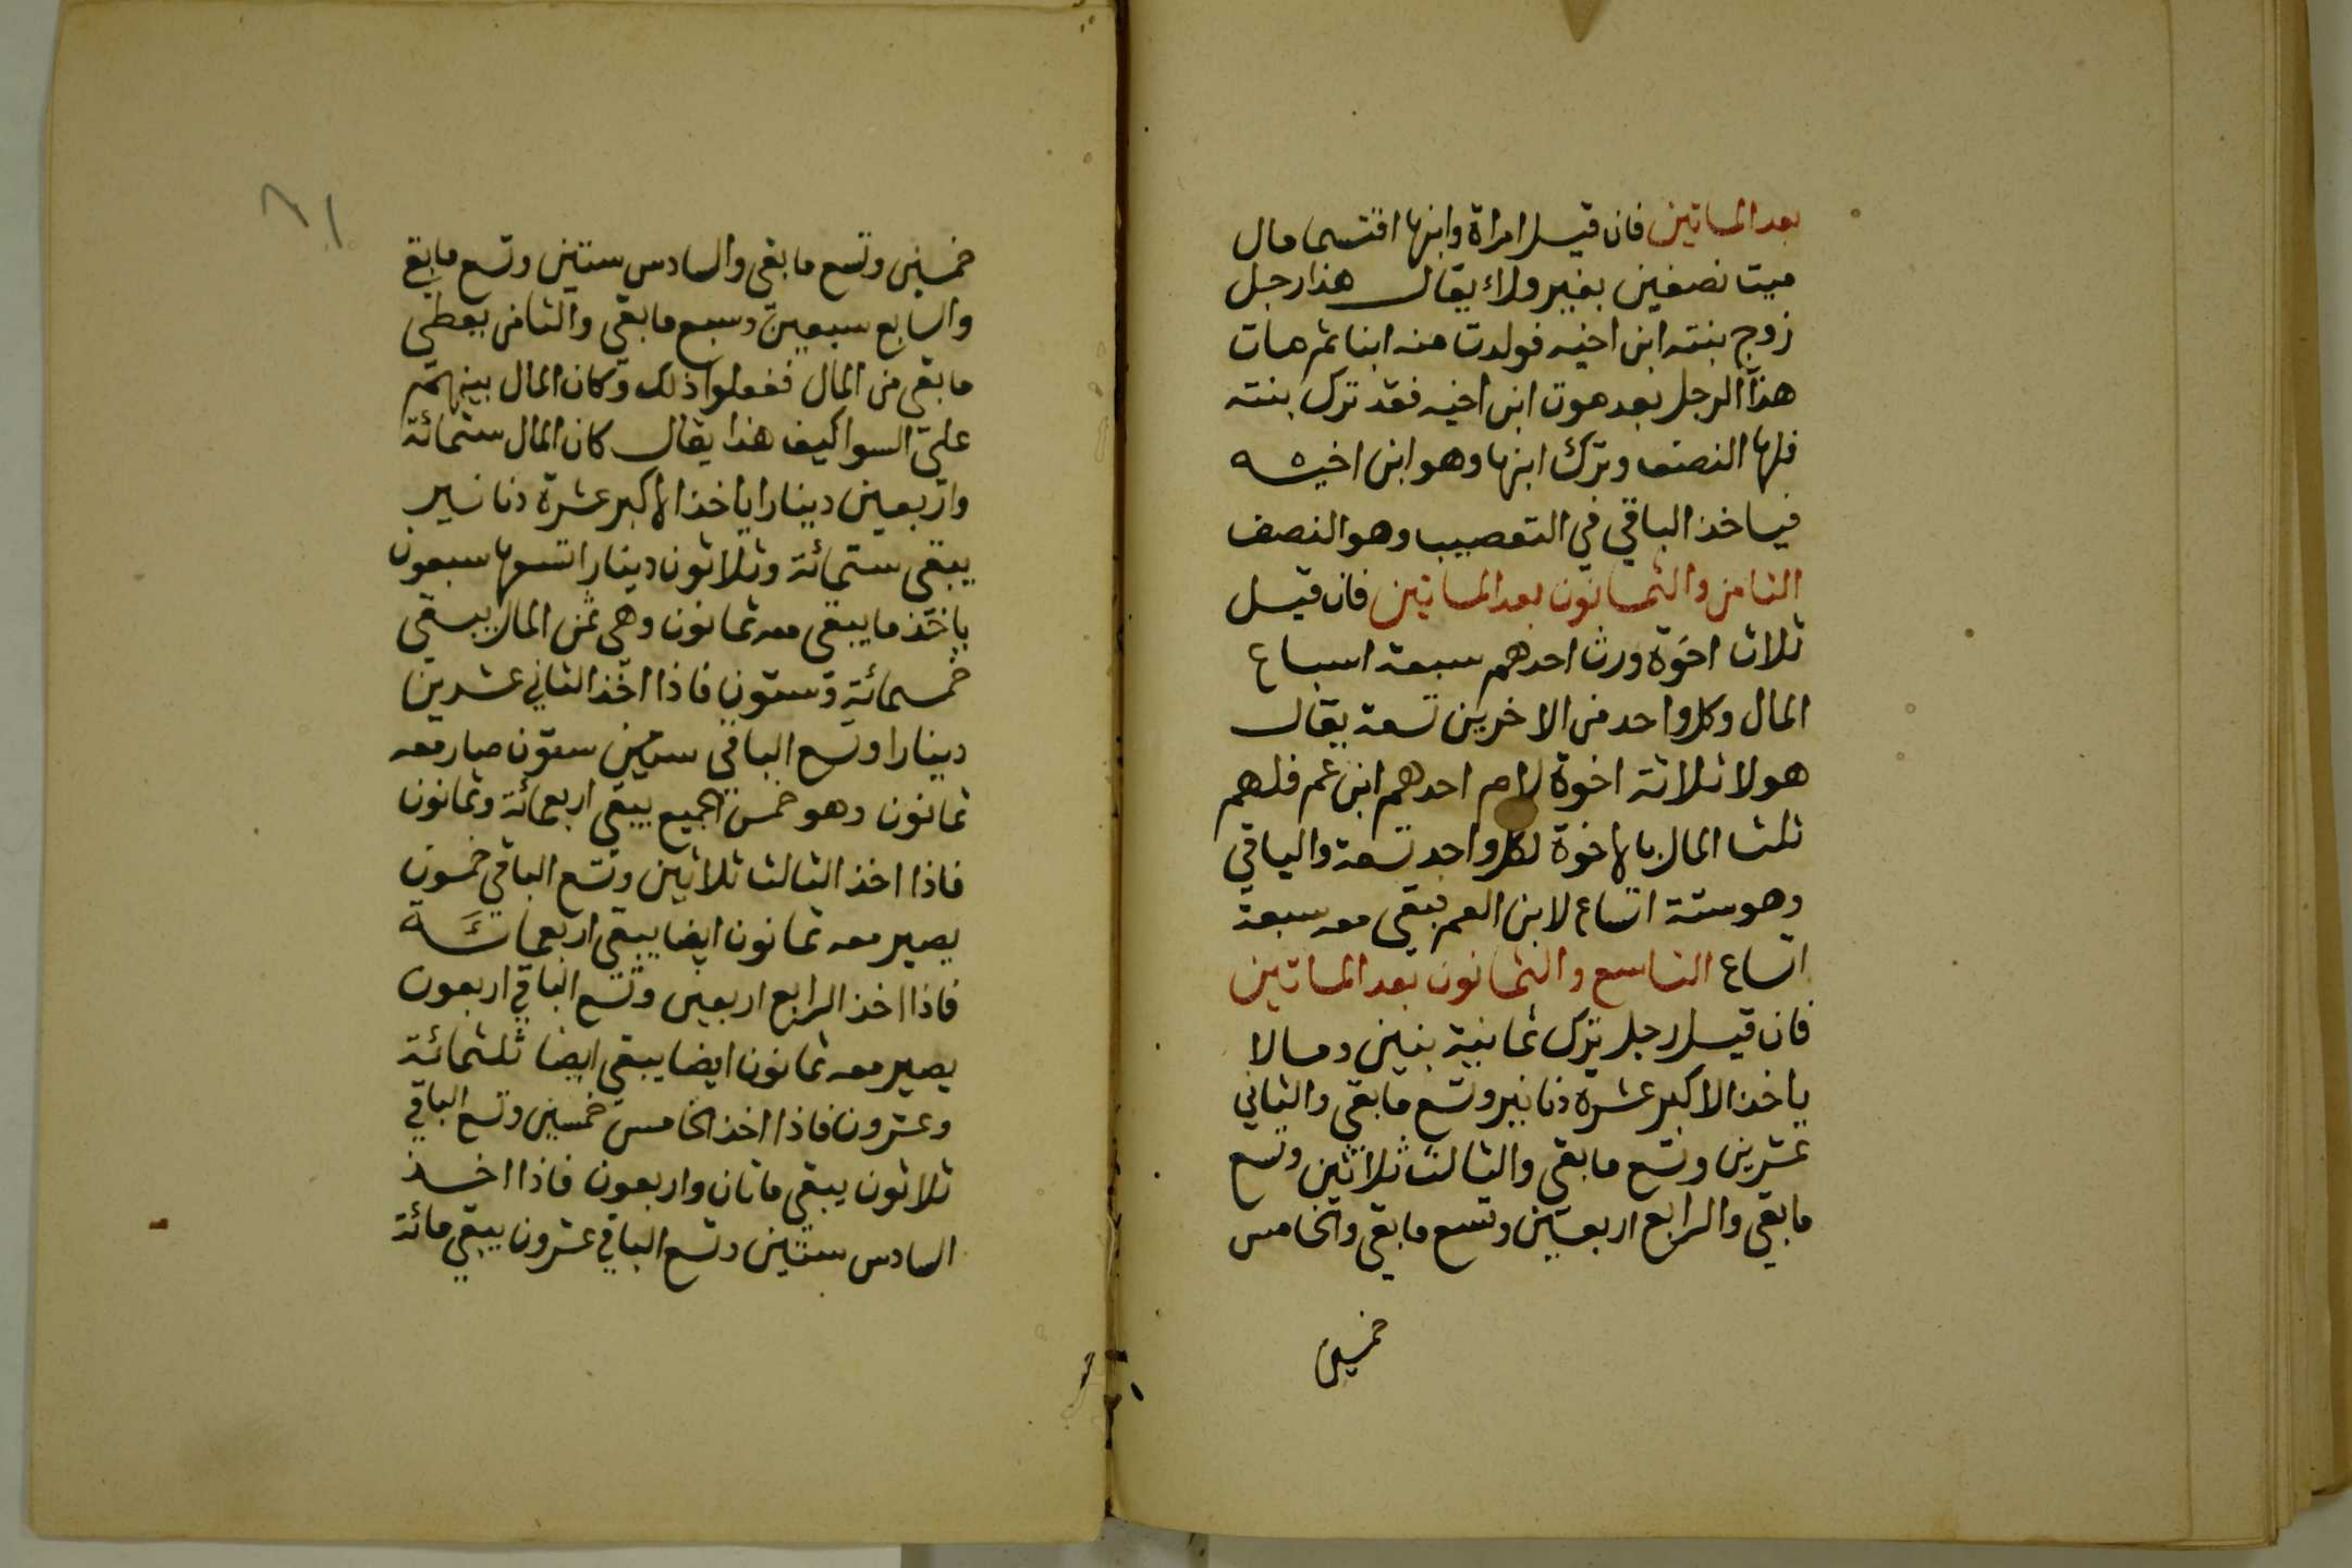 بعد الماتين فان قيل امراة وابنها اقتسما مال
ميت نصفين بغير ولاء يقال هذا رجل
زوج بنته ابن اخيه فولدت منه ابنا ثم مات
هذا الرجل بعد موت ابن اخيه فقد ترك بنته
فلها النصف وترك ابنها وهو ابن اخيه
فياخذ الباقي في التعصيب وهو النصف
الثامن والثمانون بعد الماتين فان قيل
ثلاث اخوة ورث احدهم سبعة اسباع
المال وكل واحد من الاخرين تسعة يقال
هولا ثلاثة اخوة لام احدهم ابن عم فلهم
ثلث المال بالاخوة لكل واحد تسعة والباقي
وهو ستة اتساع لابن العم فبقى معه سبعة
اتساع التاسع والثمانون بعد الماتين
فان قيل رجل ترك ثمانية بنين ومالا
ياخذ الاكبر عشرة دنانير وتسع ما بقى والثاني
عشرين وتسع ما بقى والثالث ثلاثين وتسع
ما بقى والرابع اربعين وتسع ما بقى والخامس
خمسين
٨١
خمسين وتسع ما بقى والسادس ستين وتسع ما بقى
والسابع سبعين وسبع ما بقى والثامن يعطى
ما بقى من المال ففعلوا ذلك وكان المال بينهم
على السوا كيف هذا يقال كان المال ستمائة
واربعين دينارا ياخذ الاكبر عشرة دنانير
يبقى ستمائة وثلاثون دينارا تسعها سبعون
ياخذ ما يبقى معه ثمانون وهي ثمن المال يبقى
خمسمائة وستون فاذا اخذ الثاني عشرين
دينارا وتسع الباقي ستون صار معه
ثمانون وهو خمس الجميع يبقى اربعمائة وثمانون
فاذا اخذ الثالث ثلاثين وتسع الباقي خمسون
يصير معه ثمانون ايضا يبقى اربعمائة
فاذا اخذ الرابع اربعين وتسع الباقي اربعون
يصير معه ثمانون ايضا يبقى ايضا ثلثمائة
وعشرون فاذا اخذ الخامس خمسين وتسع الباقي
ثلاثون يبقى ماتان واربعون فاذا اخذ
السادس ستين وتسع الباقي عشرون يبقى مائة